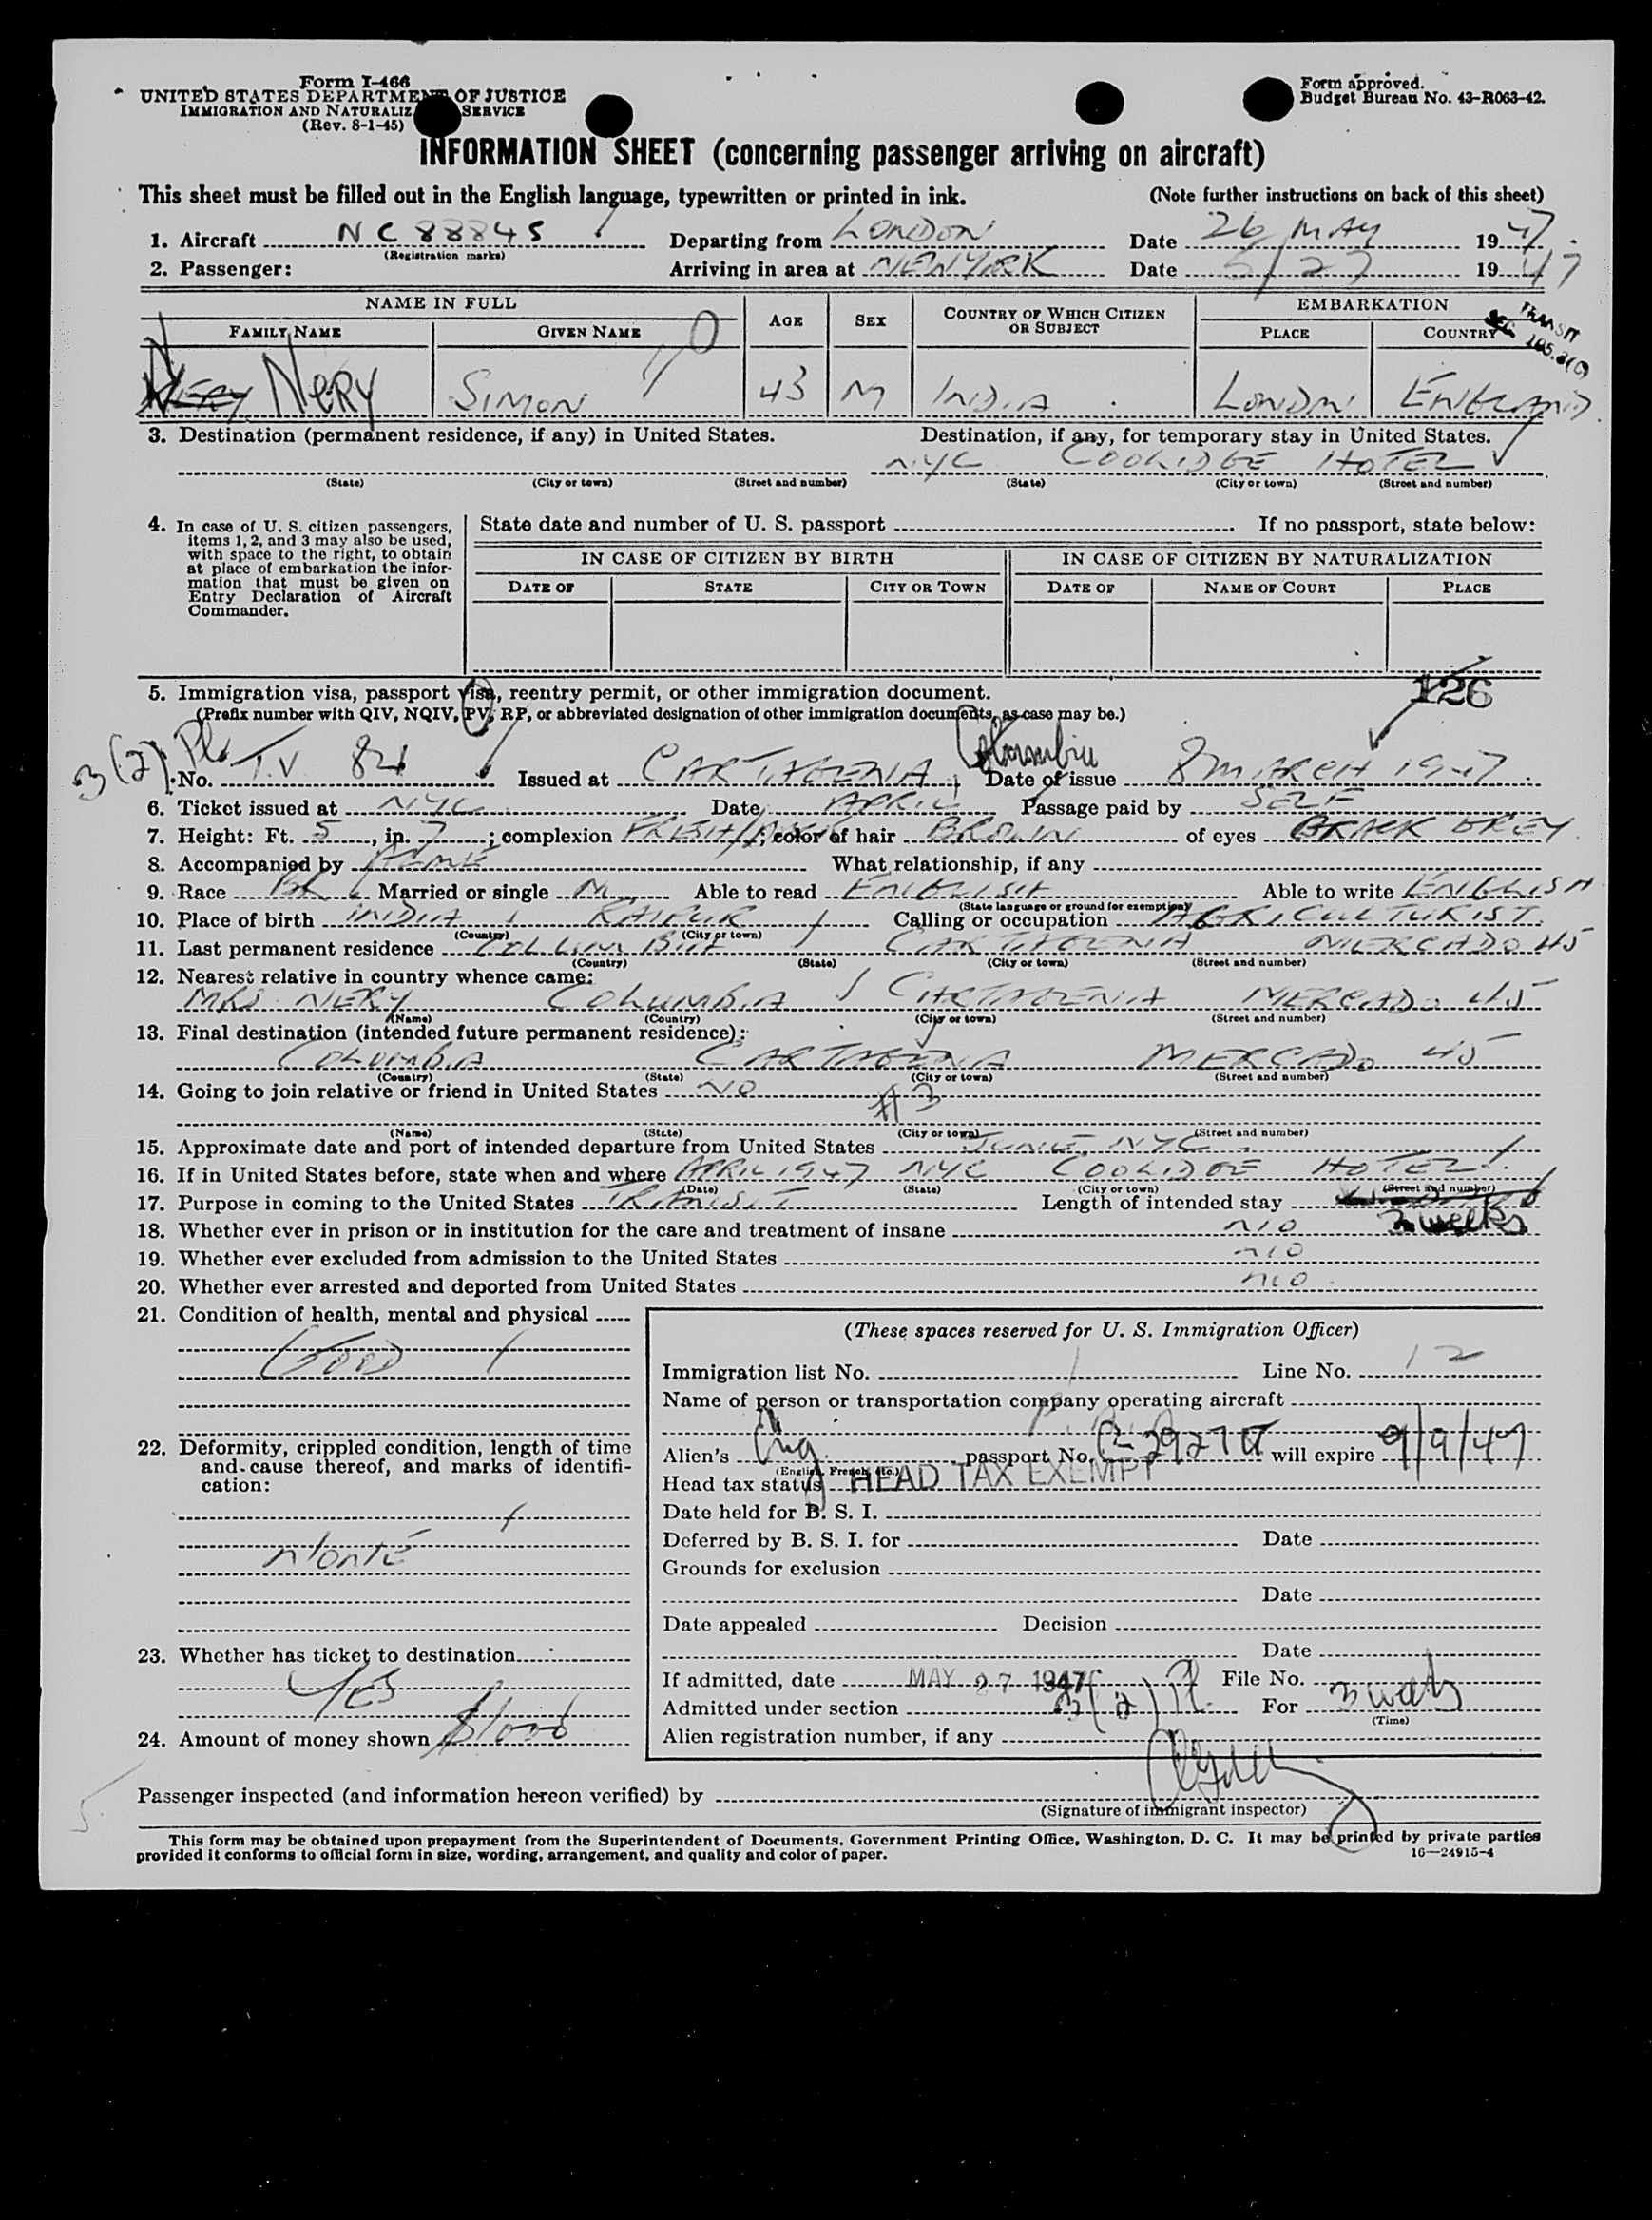 Form I-466
UNITED STATES DEPARTMENT OF JUSTICE
IMMIGRATION AND NATURALIZ SERVICE
(Rev. 8-1-45)
Form approved.
Budget Bureau No. 43-R063-42.
INFORMATION SHEET (concerning passenger arriving on aircraft)
This sheet must be filled out in the English language, typewritten or printed in ink. (Note further instructions on back of this sheet)
1. Aircraft NC 88845 Departing from LONDON Date 26 MAY 1947.
(Registration marks)
2. Passenger: Arriving in area at NEW YORK Date 5/27 1947
NAME IN FULL AGE SEX COUNTRY OF WHICH CITIZEN OR SUBJECT EMBARKATION
FAMILY NAME GIVEN NAME PLACE COUNTRY
TRANSIT
NERY NERY SIMON 43 M INDIA. LONDON ENGLAND
3. Destination (permanent residence, if any) in United States. Destination, if any, for temporary stay in United States.
NYC COOLIDGE HOTEL
(State) (City or town) (Street and number) (State) (City or town) (Street and number)
4. In case of U. S. citizen passengers, items 1, 2, and 3 may also be used, with space to the right, to obtain at place of embarkation the information that must be given on Entry Declaration of Aircraft Commander.
State date and number of U. S. passport If no passport, state below:
IN CASE OF CITIZEN BY BIRTH IN CASE OF CITIZEN BY NATURALIZATION
DATE OF STATE CITY OR TOWN DATE OF NAME OF COURT PLACE
126
5. Immigration visa, passport visa, reentry permit, or other immigration document.
(Prefix number with QIV, NQIV, PV, RP, or abbreviated designation of other immigration documents, as case may be.)
3(2) No. T.V 84 Issued at CARTAGENA, Colombia Date of issue 8 MARCH 1947
6. Ticket issued at NYC Date APRIL Passage paid by SELF
7. Height: Ft. 5, in. 7; complexion FRESH; color of hair BROWN of eyes GREY
8. Accompanied by What relationship, if any
9. Race Married or single M Able to read ENGLISH Able to write ENGLISH
(State language or ground for exemption)
10. Place of birth INDIA, RAIPUR Calling or occupation AGRICULTURIST
(Country) (City or town)
11. Last permanent residence COLLUMBIA CARTAGENA MERCADO 45
(Country) (State) (City or town) (Street and number)
12. Nearest relative in country whence came:
MRS. NERY COLUMBIA CARTAGENA MERCADO 45
(Name) (Country) (City or town) (Street and number)
13. Final destination (intended future permanent residence):
COLUMBIA CARTAGENA MERCADO 45
(Country) (State) (City or town) (Street and number)
14. Going to join relative or friend in United States NO
#3
(Name) (State) (City or town) (Street and number)
15. Approximate date and port of intended departure from United States JUNE NYC
16. If in United States before, state when and where APRIL 1947 NYC COOLIDGE HOTEL
(Date) (State) (City or town) (Street and number)
17. Purpose in coming to the United States TRANSIT Length of intended stay
3 weeks
18. Whether ever in prison or in institution for the care and treatment of insane NO
19. Whether ever excluded from admission to the United States NO
20. Whether ever arrested and deported from United States NO
21. Condition of health, mental and physical
GOOD
22. Deformity, crippled condition, length of time and cause thereof, and marks of identification:
NONE
23. Whether has ticket to destination
YES
24. Amount of money shown $1000
(These spaces reserved for U. S. Immigration Officer)
Immigration list No. 1 Line No. 12
Name of person or transportation company operating aircraft
Alien's Eng. passport No. will expire 9/9/47
(English, French, etc.)
Head tax status HEAD TAX EXEMPT
Date held for B. S. I.
Deferred by B. S. I. for Date
Grounds for exclusion
Date
Date appealed Decision
Date
If admitted, date MAY 27 1947 File No.
Admitted under section 3(2) For 3 weeks
(Time)
Alien registration number, if any
Passenger inspected (and information hereon verified) by
(Signature of immigrant inspector)
This form may be obtained upon prepayment from the Superintendent of Documents, Government Printing Office, Washington, D. C. It may be printed by private parties
provided it conforms to official form in size, wording, arrangement, and quality and color of paper. 16—24915-4